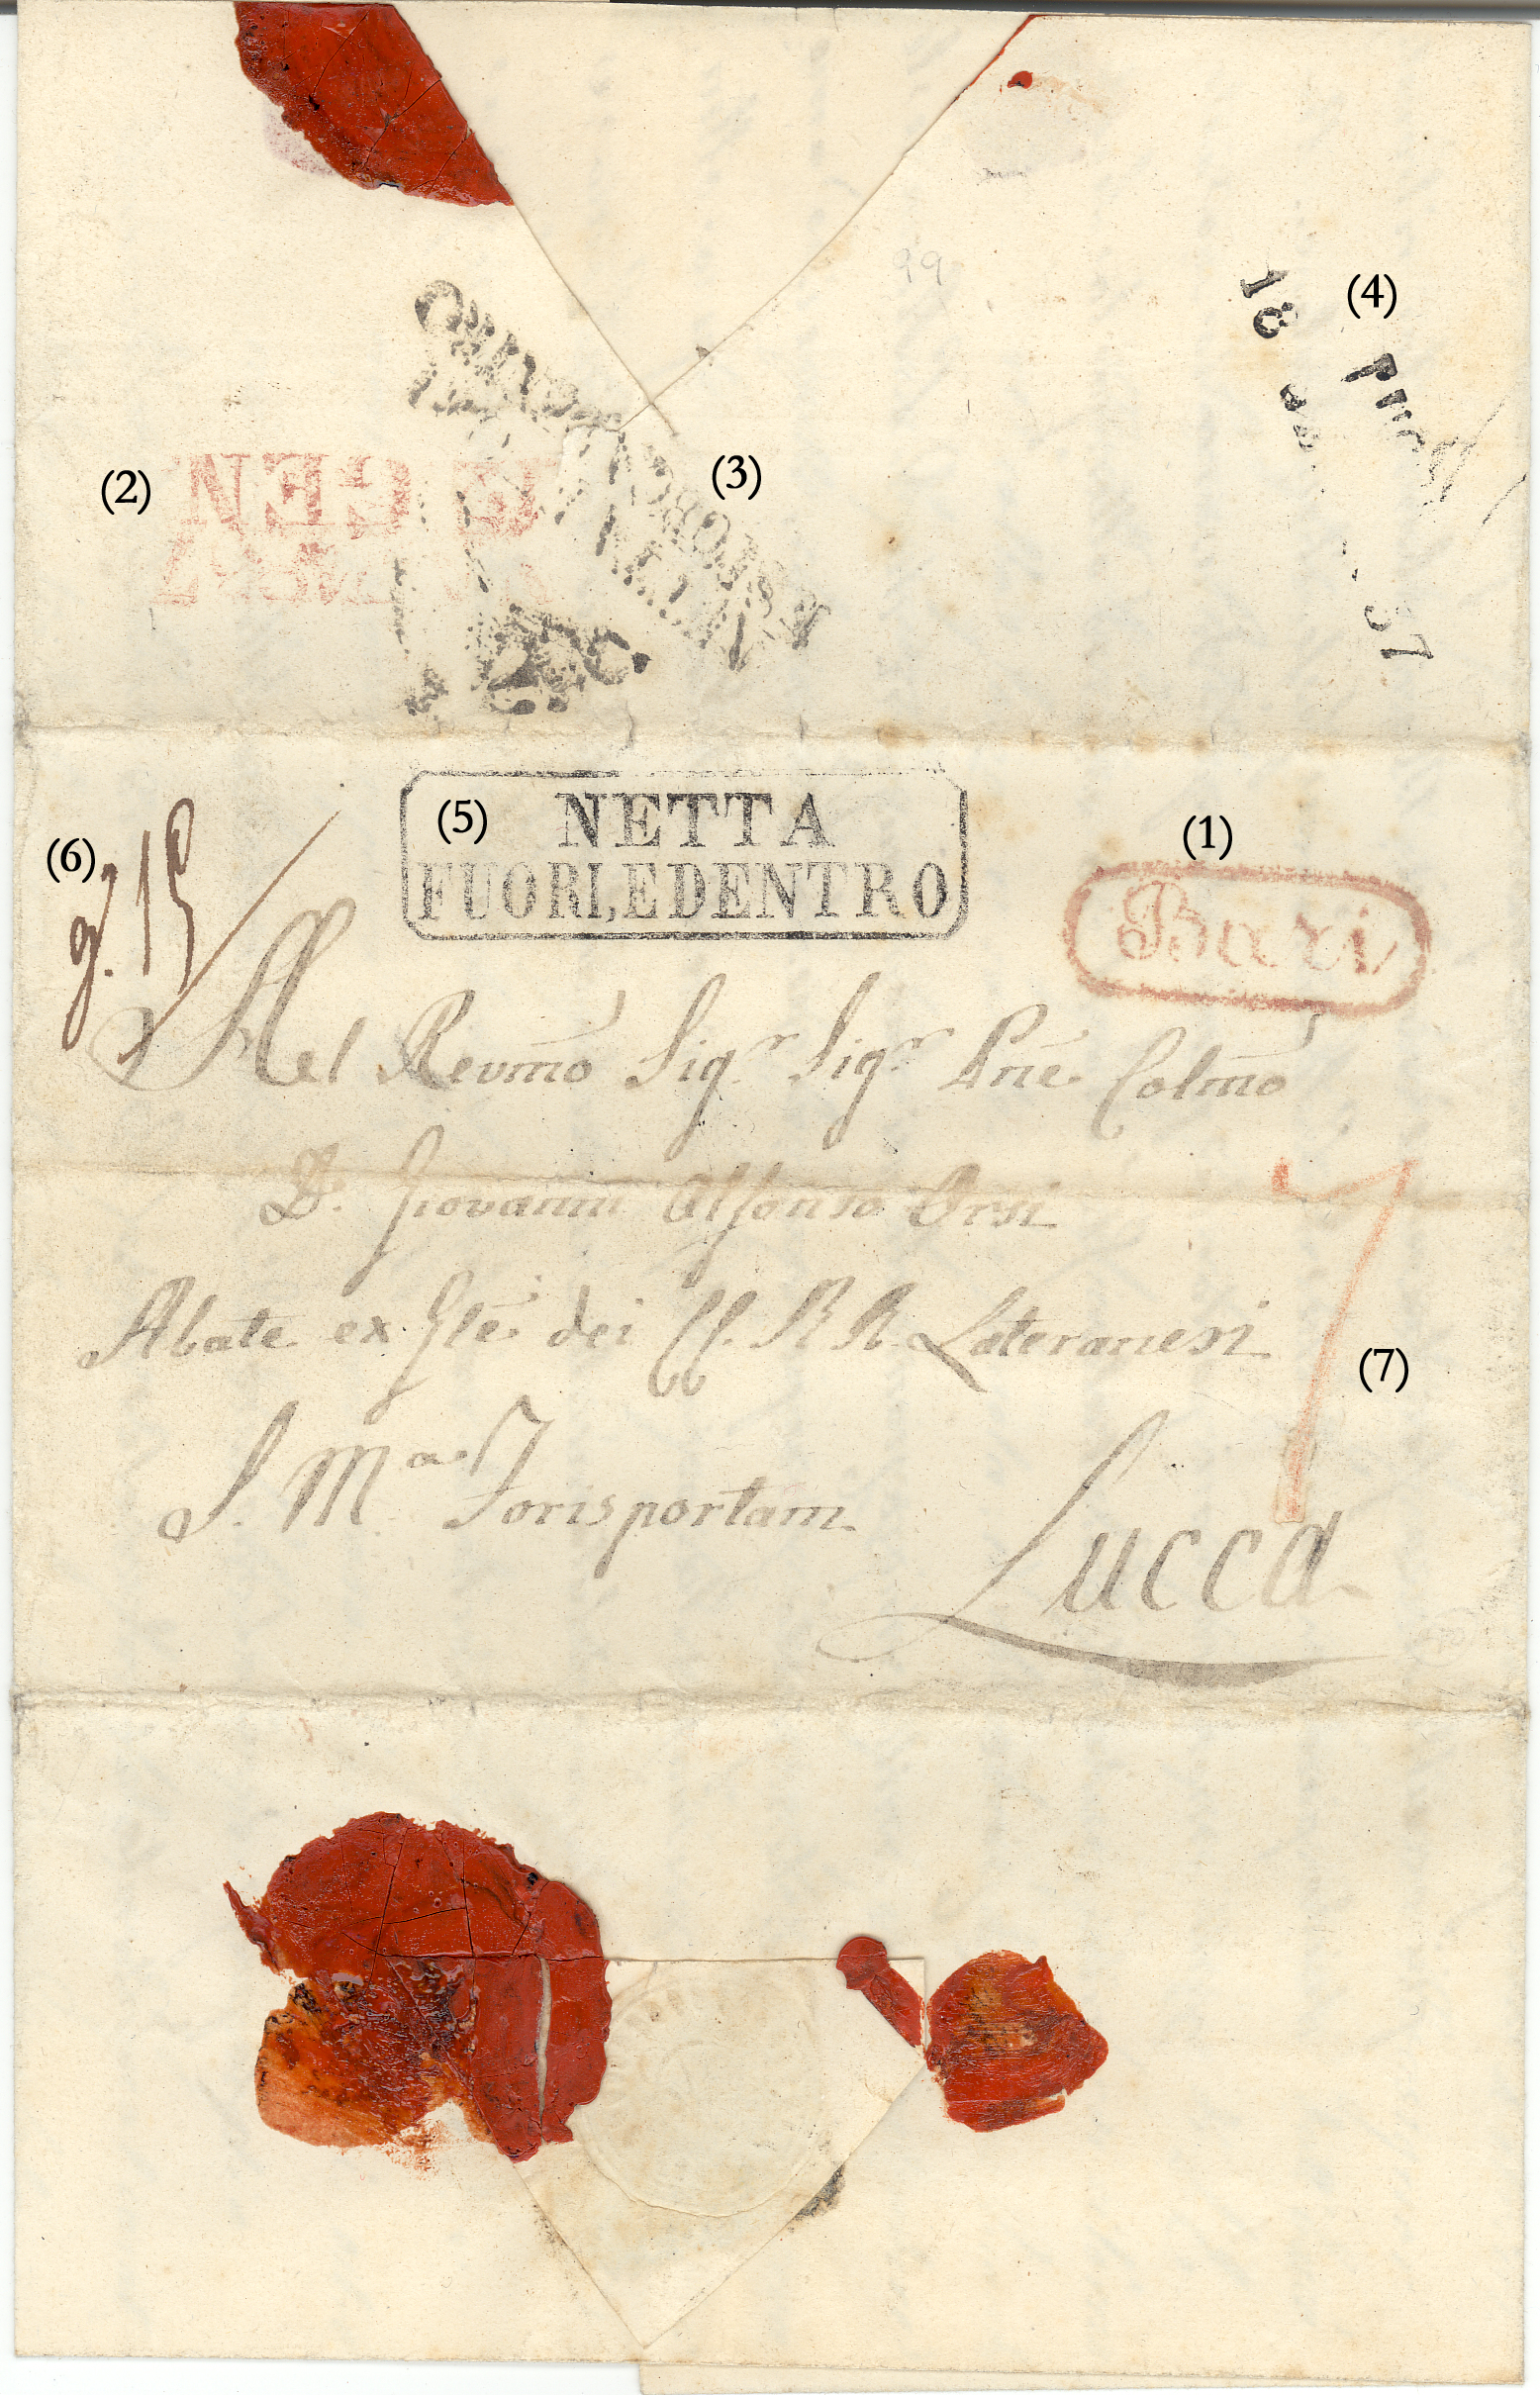 99
(4)
18
37
(2)
(3)
GEN
(5)
NETTA
FUORI, E DENTRO
(1)
Bari
(6)
g. 15
Al Revmo Sigr Sigr Pne Colmo
D. Giovanni Alfonso Orsi
Abate ex Gle dei CC. RR. Lateranesi
7
(7)
S. Ma Forisportam
Lucca